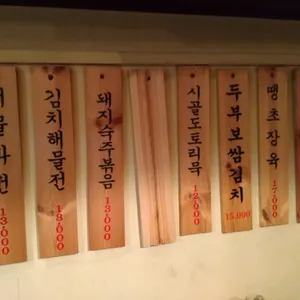 해물파전
13,000
김치해물전
13,000
돼지숙주볶음
13,000
시골도토리묵
12,000
두부보쌈김치
15,000
땡초장육
17,000